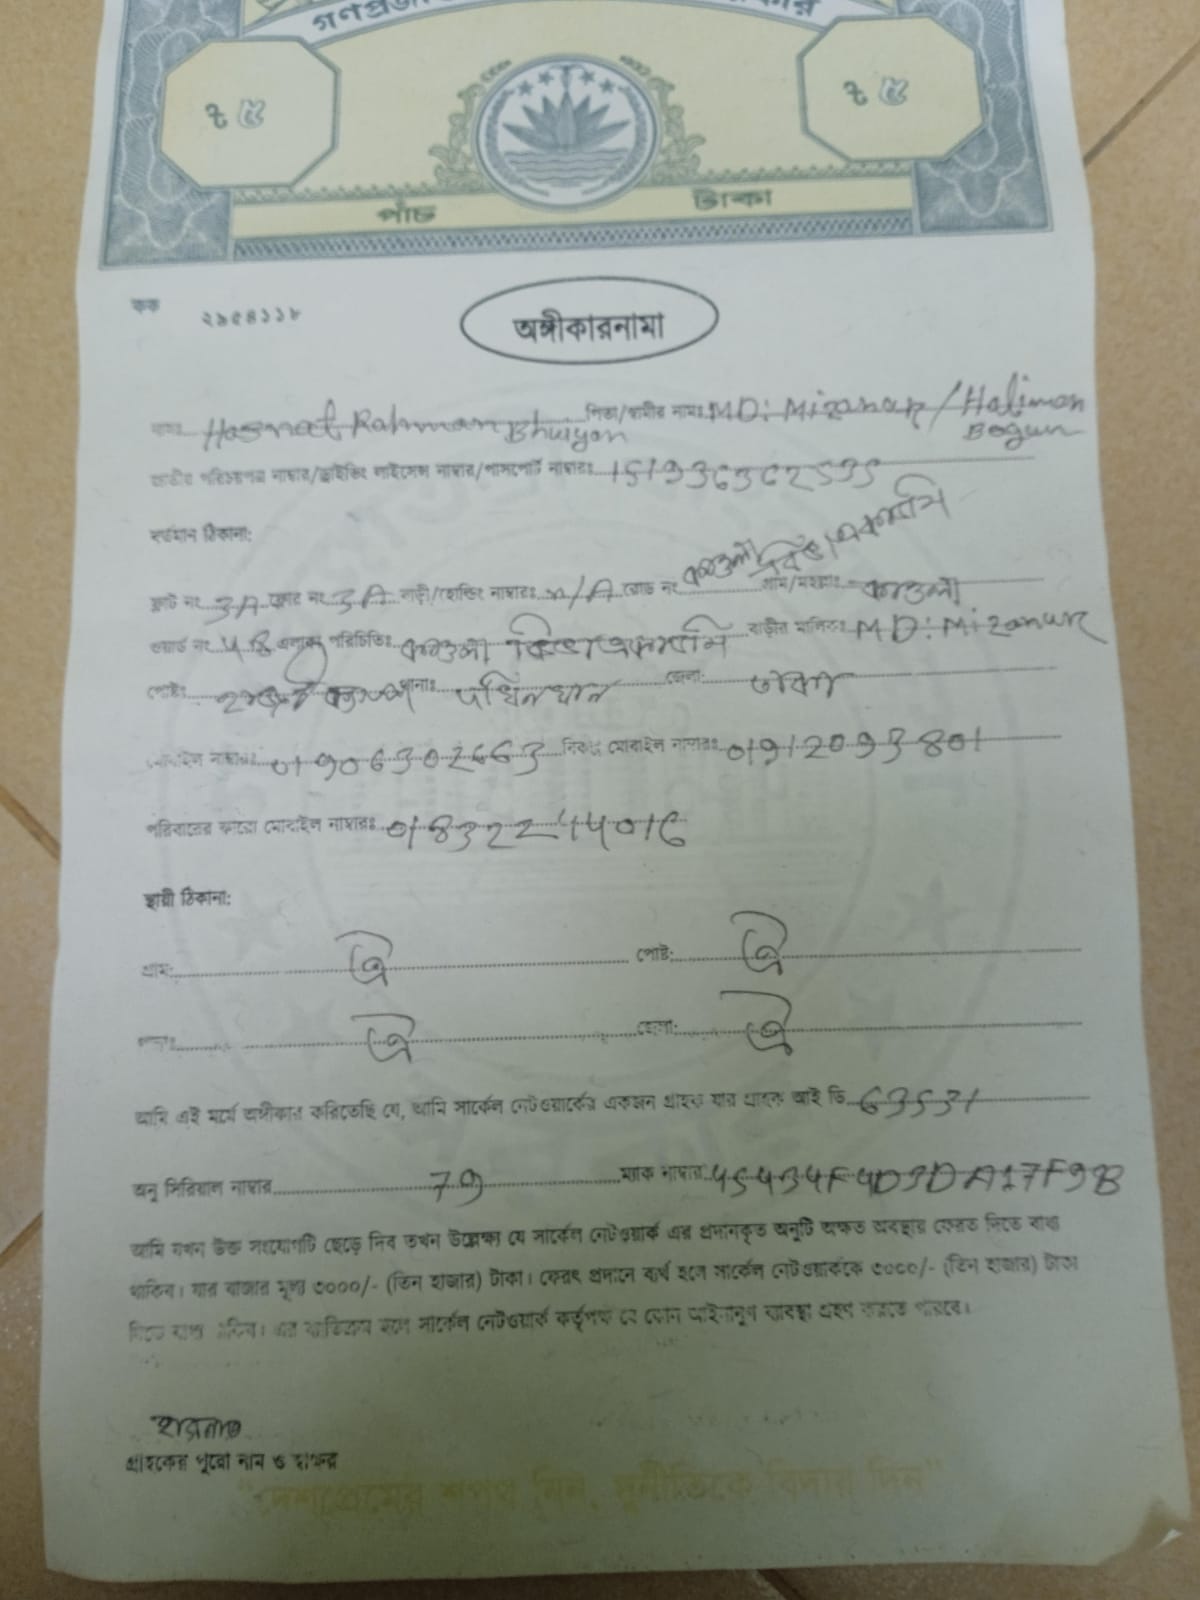 ৳ ৫
৳ ৫
পাঁচ টাকা
কক ২৯৫৪১১৮
অঙ্গীকারনামা
নাম: Hasnat Rahman Bhuiyan পিতা/স্বামীর নামঃ MD: Mizanur / Halimon Begum
জাতীয় পরিচয়পত্র নাম্বার/ড্রাইভিং লাইসেন্স নাম্বার/পাসপোর্ট নাম্বারঃ
বর্তমান ঠিকানা:
ফ্লাট নং 3A ফ্লোর নং 3A বাড়ী/হোল্ডিং নাম্বারঃ N/A রোড নং কাওলা গ্রাম/মহল্লাঃ কাওলা
ওয়ার্ড নং এলাকা পরিচিতিঃ কাওলা বাড়ীর মালিকঃ MD: Mizanur
পোষ্টঃ থানাঃ দক্ষিনখান জেলা: ঢাকা
মোবাইল নাম্বারঃ 01906302663 মোবাইল নাম্বারঃ 01912093801
পরিবারের কারো মোবাইল নাম্বারঃ 01832244016
স্থায়ী ঠিকানা:
গ্রাম: ঐ পোষ্ট: ঐ
থানা: ঐ জেলা: ঐ
আমি এই মর্মে অঙ্গীকার করিতেছি যে, আমি সার্কেল নেটওয়ার্কের একজন গ্রাহক যার গ্রাহক আই ডি 63531
অনু সিরিয়াল নাম্বার 79 ম্যাক নাম্বার: 45434F4D3DA17F9B
আমি যখন উক্ত সংযোগটি ছেড়ে দিব তখন উল্লেক্ষ্য যে সার্কেল নেটওয়ার্ক এর প্রদানকৃত অনুটি অক্ষত অবস্থায় ফেরত দিতে বাধ্য
থাকিব। যার বাজার মূল্য ৩০০০/- (তিন হাজার) টাকা। ফেরৎ প্রদানে ব্যর্থ হলে সার্কেল নেটওয়ার্ককে ৩০০০/- (তিন হাজার) টাকা
দিতে বাধ্য থাকিব। এর ব্যতিক্রম হলে সার্কেল নেটওয়ার্ক কর্তৃপক্ষ যে কোন আইনানুগ ব্যবস্থা গ্রহণ করতে পারবে।
হাসনাত
গ্রাহকের পুরো নাম ও স্বাক্ষর
"দেশপ্রেমের শপথ নিন, দুর্নীতিকে বিদায় দিন"